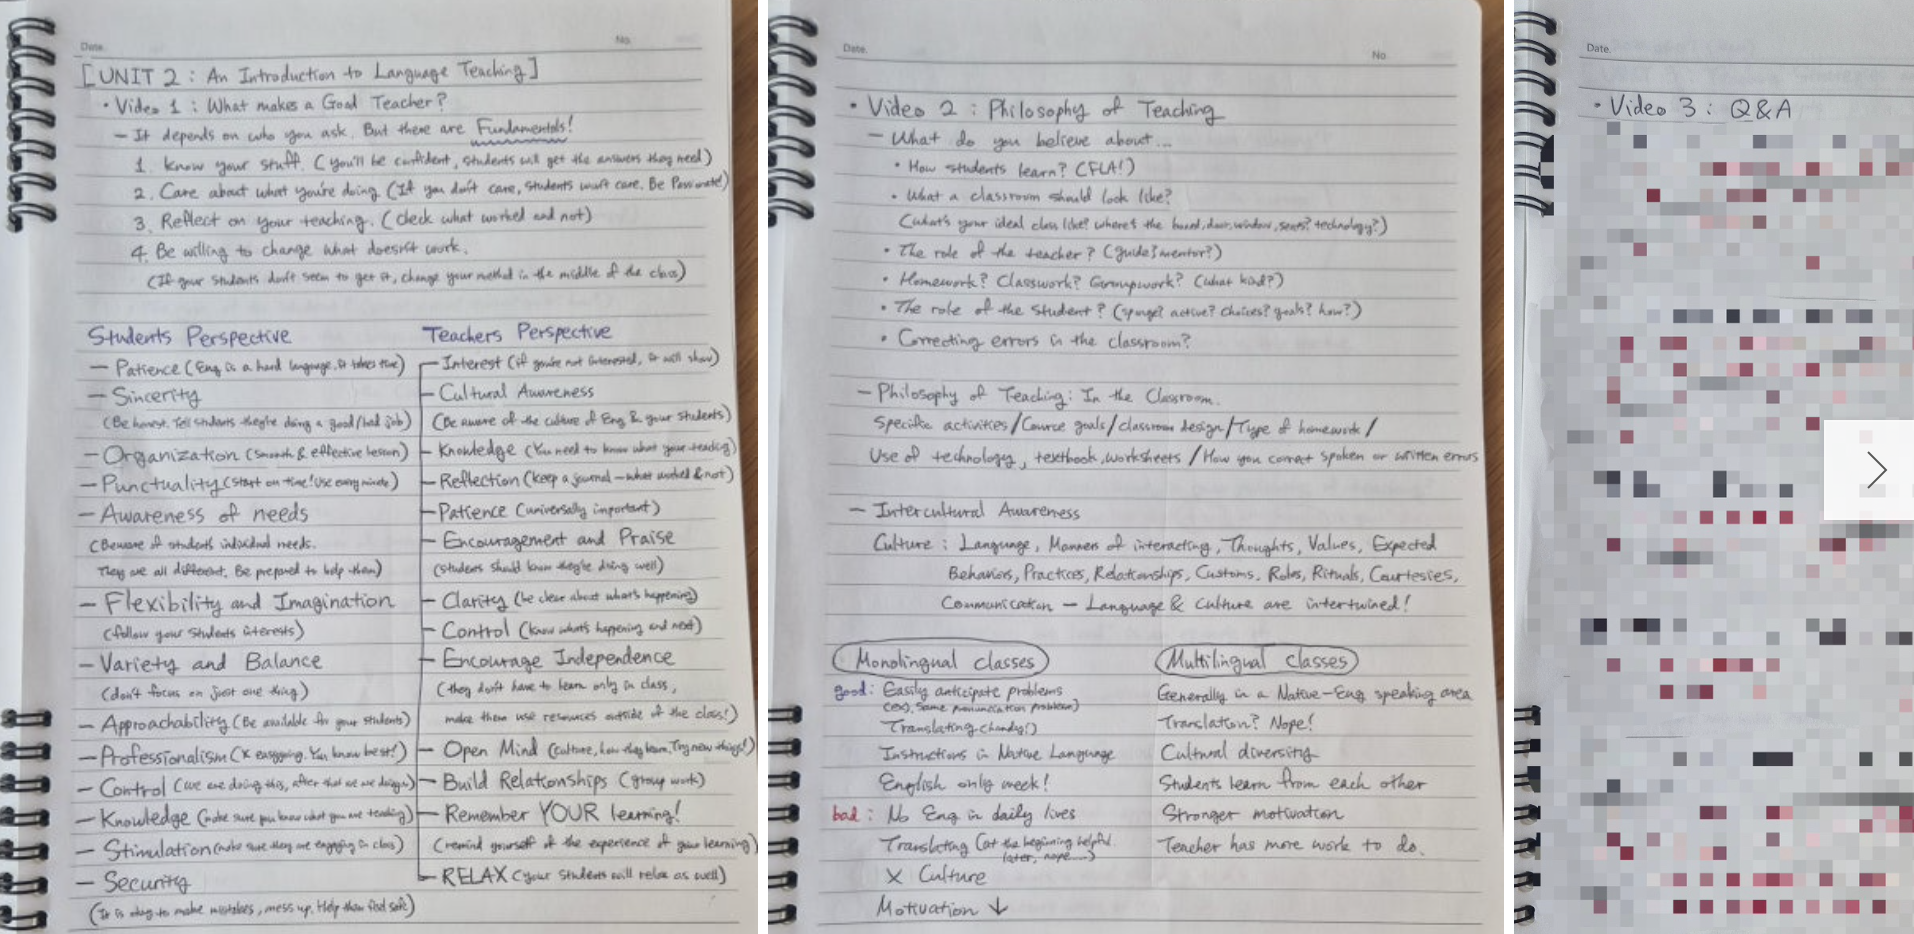 Date.
No.
[UNIT 2 : An Introduction to Language Teaching]
• Video 1 : What makes a Good Teacher?
– It depends on who you ask. But there are Fundamentals!
1. Know your stuff. (you'll be confident, students will get the answers they need)
2. Care about what you're doing (If you don't care, students won't care. Be Passionate!)
3. Reflect on your teaching. (check what worked and not)
4. Be willing to change what doesn't work.
(If your students don't seem to get it, change your method in the middle of the class)
Students Perspective
– Patience (Eng is a hard language, it takes time)
– Sincerity
(Be honest. Tell students they're doing a good/bad job)
– Organization (smooth & effective lesson)
– Punctuality (start on time! Use every minute)
– Awareness of needs
(Beware of students individual needs.
They are all different. Be prepared to help them)
– Flexibility and Imagination
(follow your students interests)
– Variety and Balance
(don't focus on just one thing)
– Approachability (Be available for your students)
– Professionalism (x easygoing. You know best!)
– Control (we are doing this, after that we are doing)
– Knowledge (make sure you know what you are teaching)
– Stimulation (make sure they are engaging in class)
– Security
(It is okay to make mistakes, mess up. Help them feel safe)
Teachers Perspective
– Interest (if you're not interested, it will show)
– Cultural Awareness
(Be aware of the culture of Eng & your students)
– Knowledge (You need to know what your teaching)
– Reflection (keep a journal – what worked & not)
– Patience (universally important)
– Encouragement and Praise
(students should know they're doing well)
– Clarity (be clear about what's happening)
– Control (know what's happening and next)
– Encourage Independence
(they don't have to learn only in class,
make them use resources outside of the class!)
– Open Mind (culture, how they learn, Try new things!)
– Build Relationships (group work)
– Remember YOUR learning!
(remind yourself of the experience of your learning)
– RELAX (your students will relax as well)
Date.
No
• Video 2 : Philosophy of Teaching
– What do you believe about...
• How students learn? (FLA!)
• What a classroom should look like?
(what's your ideal class like? where's the board, door, window, seats? technology?)
• The role of the teacher? (guide? mentor?)
• Homework? Classwork? Groupwork? (what kind?)
• The role of the student? (sponge? active? choices? goals? how?)
• Correcting errors in the classroom?
– Philosophy of Teaching: In the Classroom.
Specific activities / Cource goals / classroom design / Type of homework /
Use of technology, textbook, worksheets / How you correct spoken or written errors
– Intercultural Awareness
Culture : Language, Manners of interacting, Thoughts, Values, Expected
Behaviors, Practices, Relationships, Customs, Roles, Rituals, Courtesies,
Communication – Language & Culture are intertwined!
Monolingual classes
good : Easily anticipate problems
(ex), same pronunciation problem)
Translating (handy!)
Instructions in Native Language
English only week!
bad : No Eng in daily lives
Translating (at the beginning helpful.
later, nope.....)
X Culture
Motivation ↓
Multilingual classes
Generally in a Native-Eng speaking area
Translation? Nope!
Cultural diversity
Students learn from each other
Stronger motivation
Teacher has more work to do.
Date.
• Video 3 : Q&A